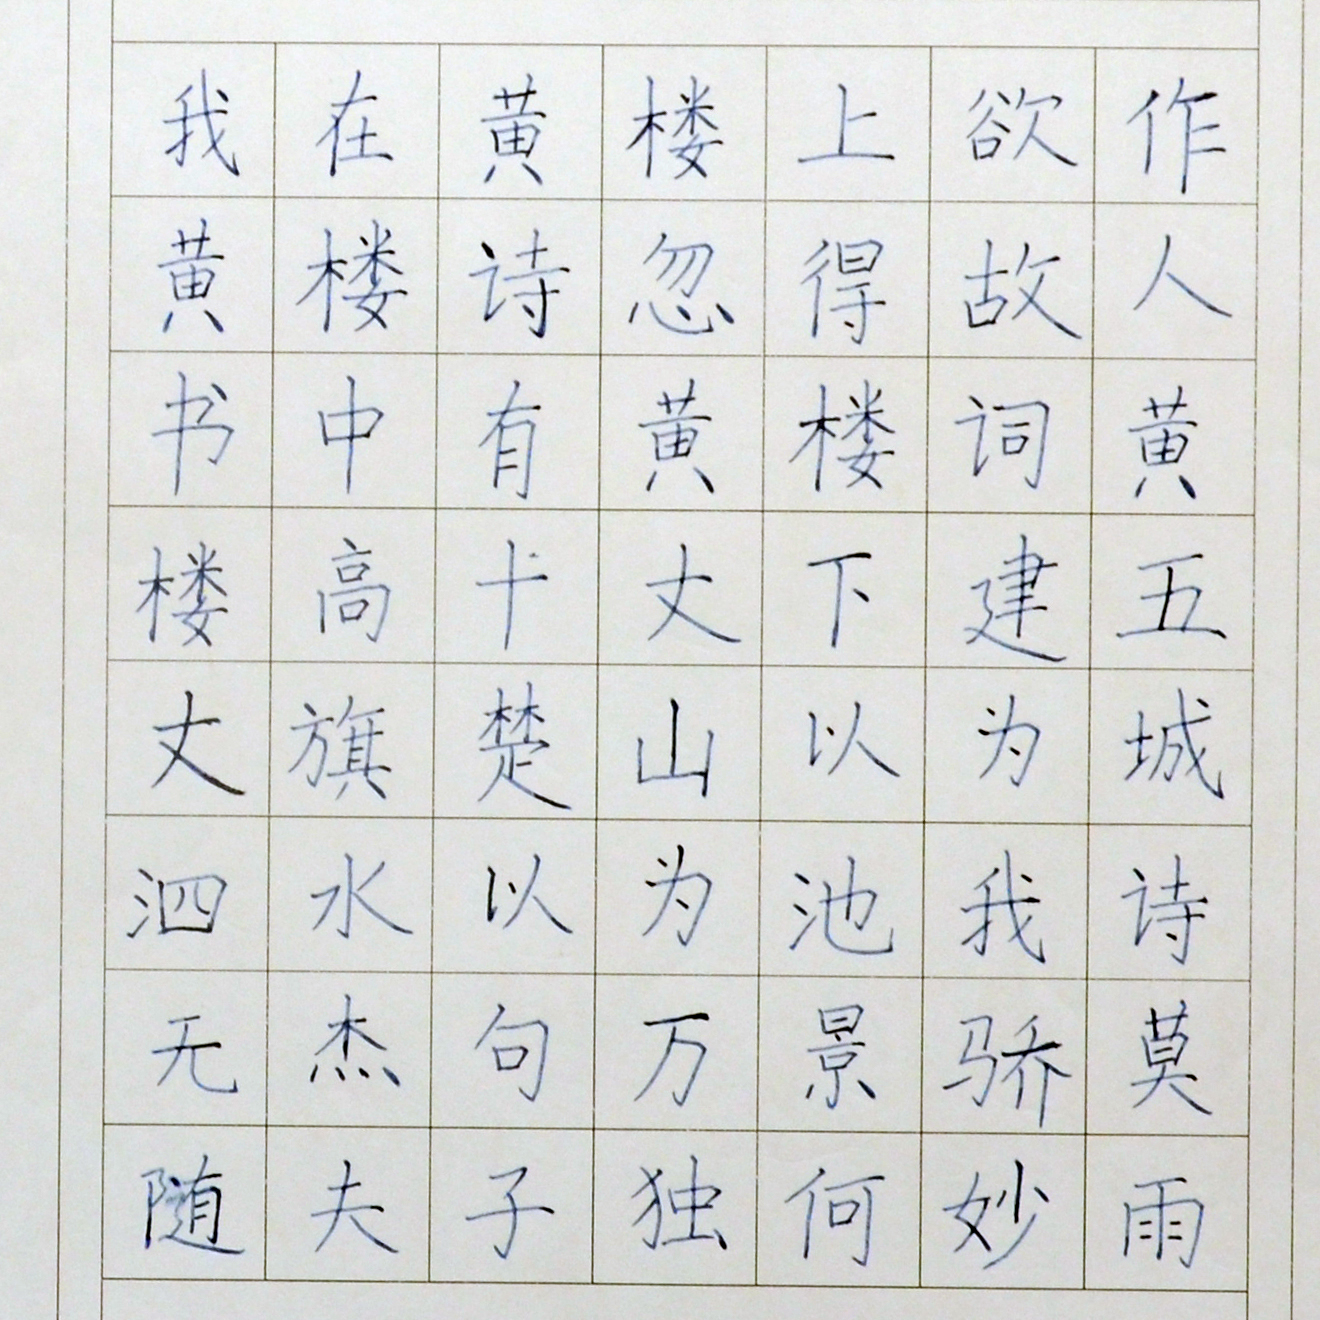 我在黄楼上欲作
黄楼诗忽得故人
书中有黄楼词黄
楼高十丈下建五
丈旗楚山以为城
泗水以为池我诗
无杰句万景骄莫
随夫子独何妙雨